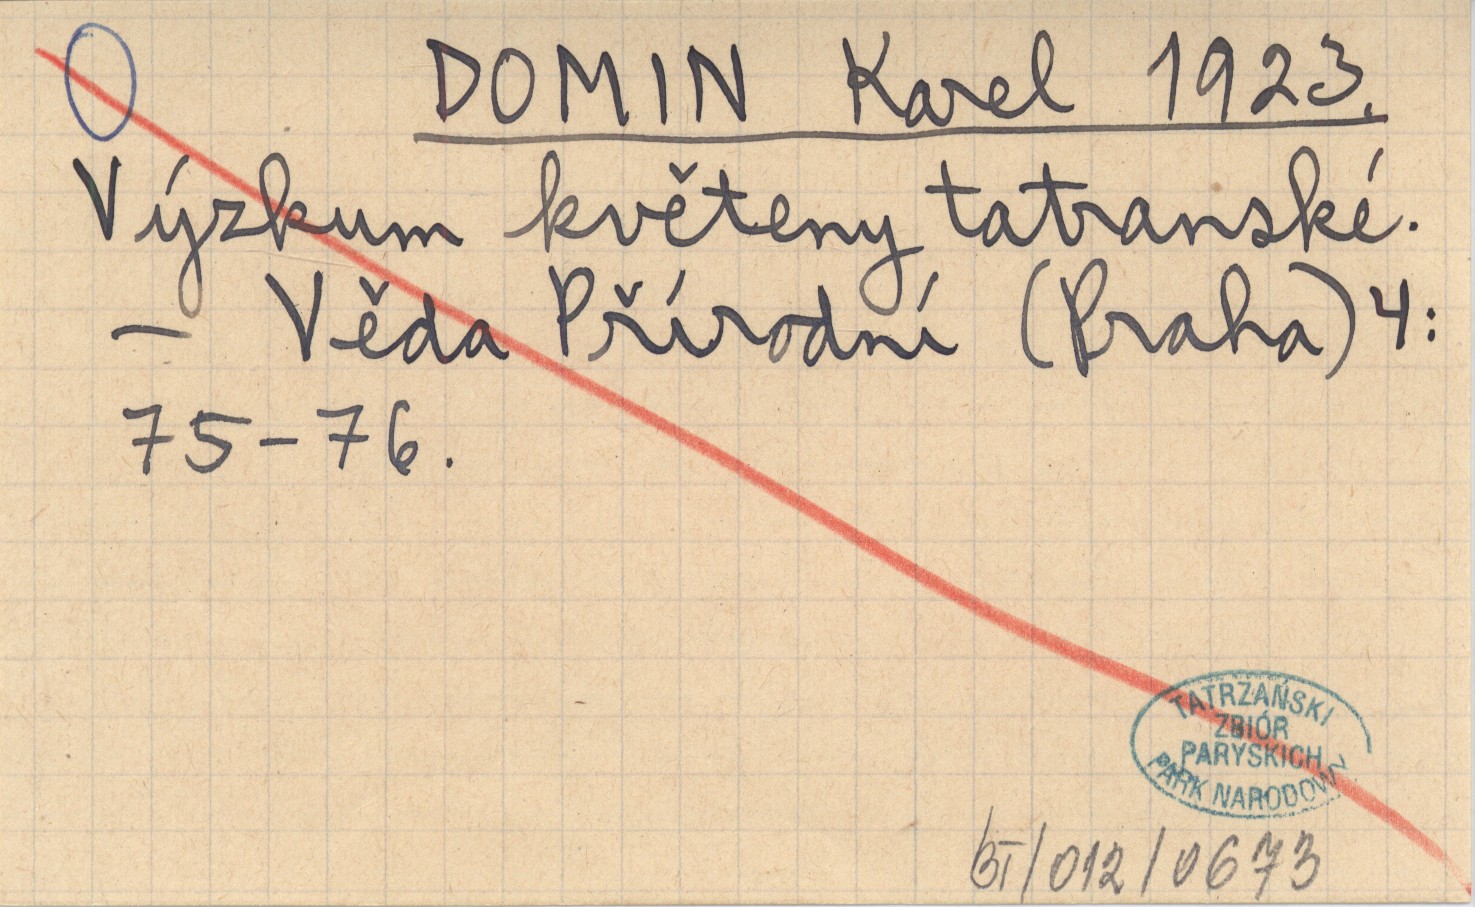 DOMIN Karel 1923.
Výzkum květeny tatranské.
— Věda Přírodní (Praha) 4:
75-76.
TATRZAŃSKI
ZBIÓR
PARYSKICH
PARK NARODOWY
BT/012/0673